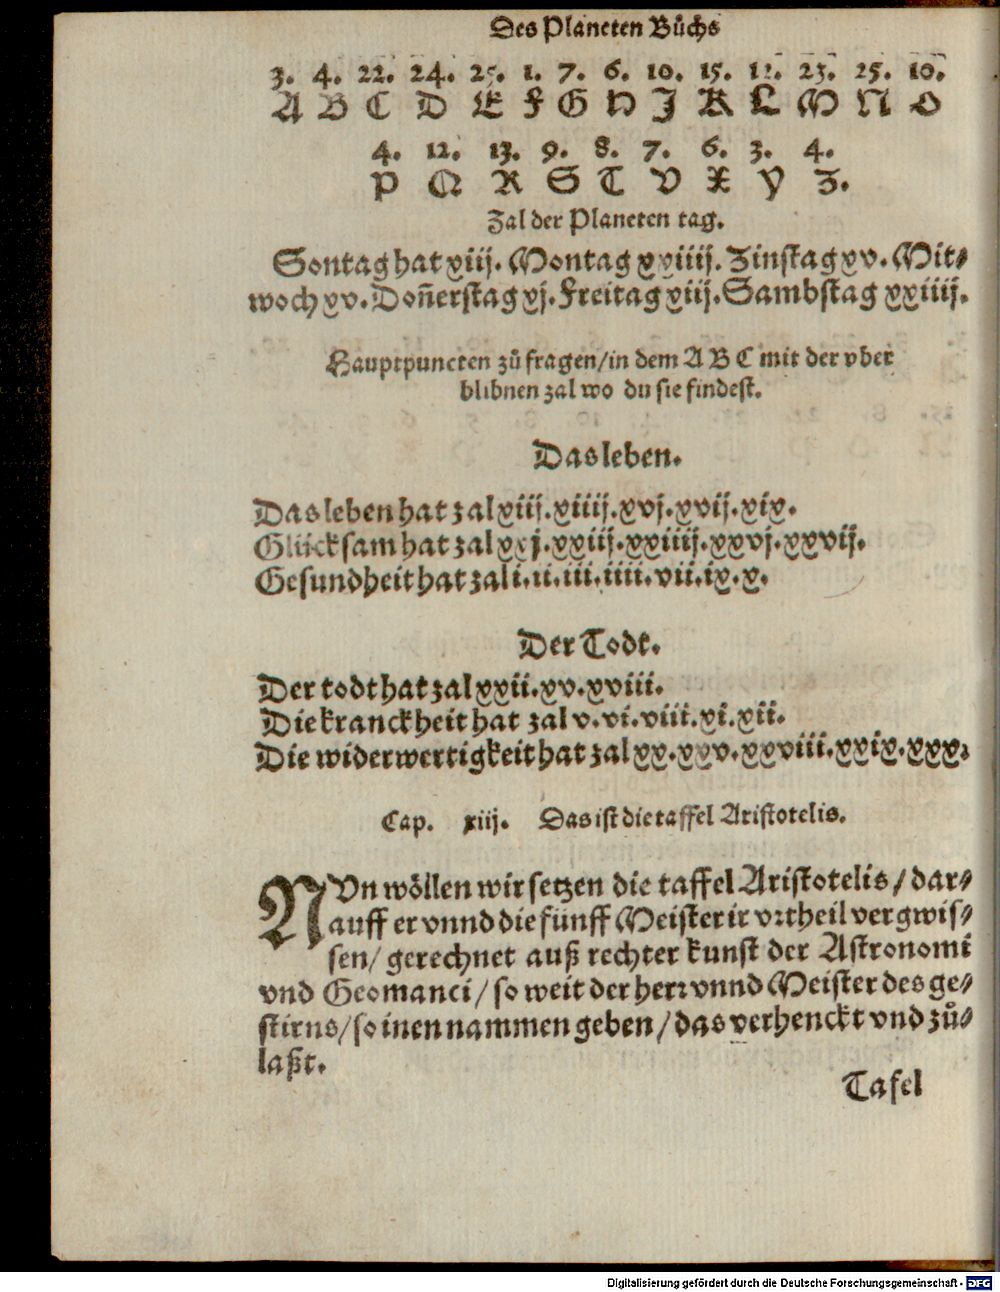 Des Planeten Bůchs
3. 4. 22. 24. 25. 1. 7. 6. 10. 15. 12. 23. 25. 10.
A B C D E F G H J K L M N O
4. 12. 13. 9. 8. 7. 6. 3. 4.
P Q R S T V X Y Z.
Zal der Planeten tag.
Sontag hat xiij. Montag xxiiij. Zinstag xv. Mit⸗
woch xv. Doñerstag xj. Freitag xiij. Sambstag xxiiij.
Hauptpuncten zů fragen/in dem A B C mit der vber
blibnen zal wo du sie findest.
Das leben.
Das leben hat zal xiij. xiiij. xvj. xvij. xix.
Glücksam hat zal xxj. xxiij. xxiiij. xxvj. xxvij.
Gesundheit hat zal i. ii. iii. iiii. vii. ix. x.
Der Todt.
Der todt hat zal xxii. xv. xviii.
Die kranckheit hat zal v. vi. viii. xi. xii.
Die widerwertigkeit hat zal xx. xxv. xxviii. xxix. xxx.
Cap. xiij. Das ist die taffel Aristotelis.
NVn wöllen wir setzen die taffel Aristotelis/dar⸗
auff er vnnd die fünff Meister ir vrtheil vergwis⸗
sen/ gerechnet auß rechter kunst der Astronomi
vnd Geomanci/so weit der herr vnnd Meister des ge⸗
stirns/so inen nammen geben/das verhenckt vnd zů⸗
laßt.
Tafel
Digitalisierung gefördert durch die Deutsche Forschungsgemeinschaft - DFG